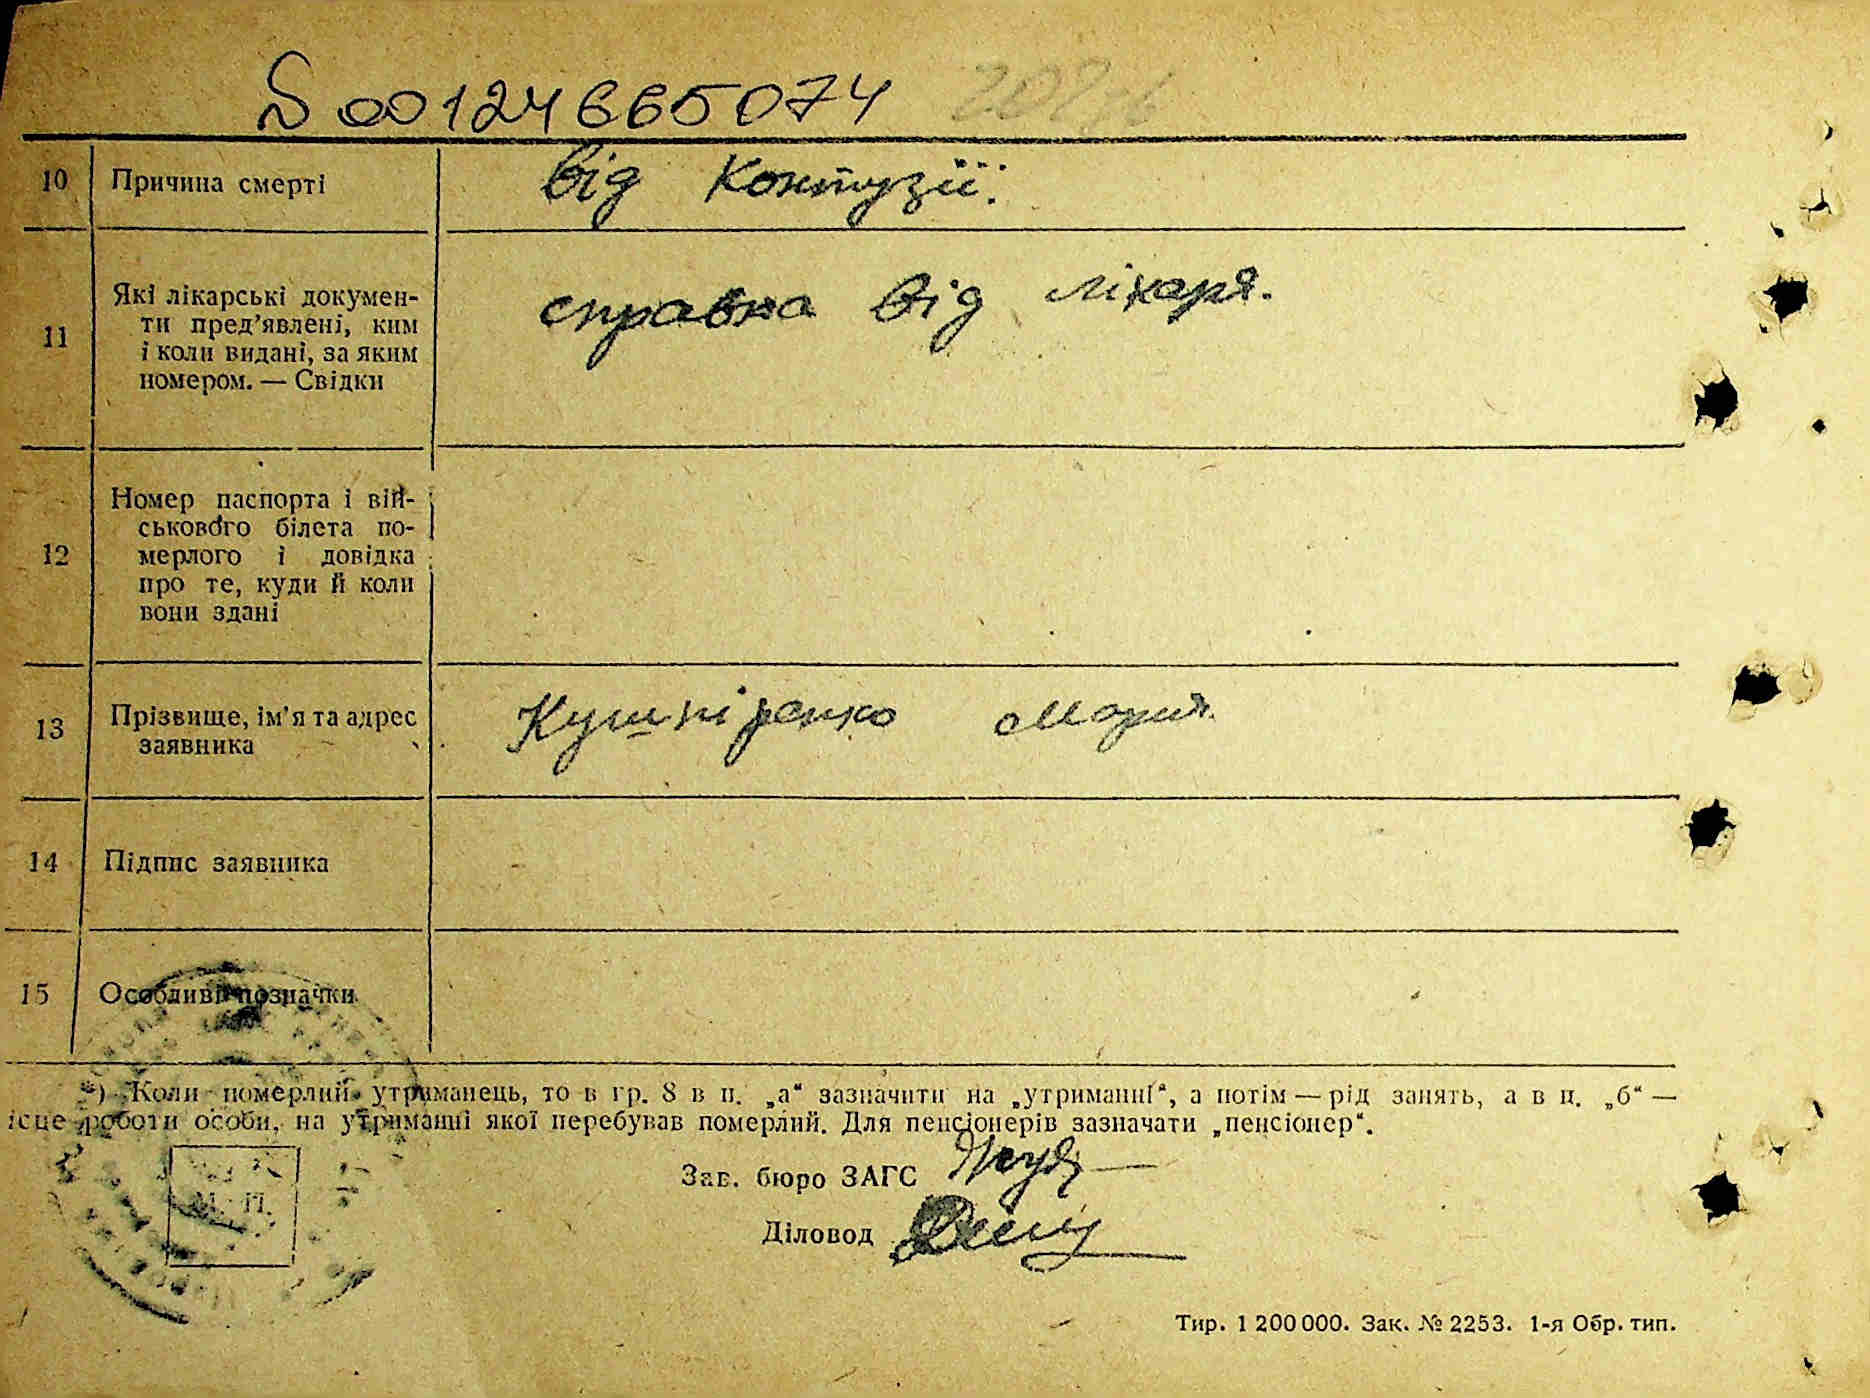 S00124665074
10 Причина смерті від Контузії.
11 Які лікарські докумен-
ти пред’явлені, ким
і коли видані, за яким
номером. — Свідки
справка від лікаря.
12 Номер паспорта і вій-
ськового білета по-
мерлого і довідка
про те, куди й коли
вони здані
13 Прізвище, ім’я та адрес
заявника
Кушніренко Мария.
14 Підпис заявника
15 Особливі позначки
*) Коли померлий утриманець, то в гр. 8 в п. „а“ зазначити на „утриманні“, а потім — рід занять, а в п. „б“ —
ісце роботи особи, на утриманні якої перебував померлий. Для пенсіонерів зазначати „пенсіонер“.
Зав. бюро ЗАГС
М. П.
Діловод
Тир. 1 200 000. Зак. № 2253. 1-я Обр. тип.